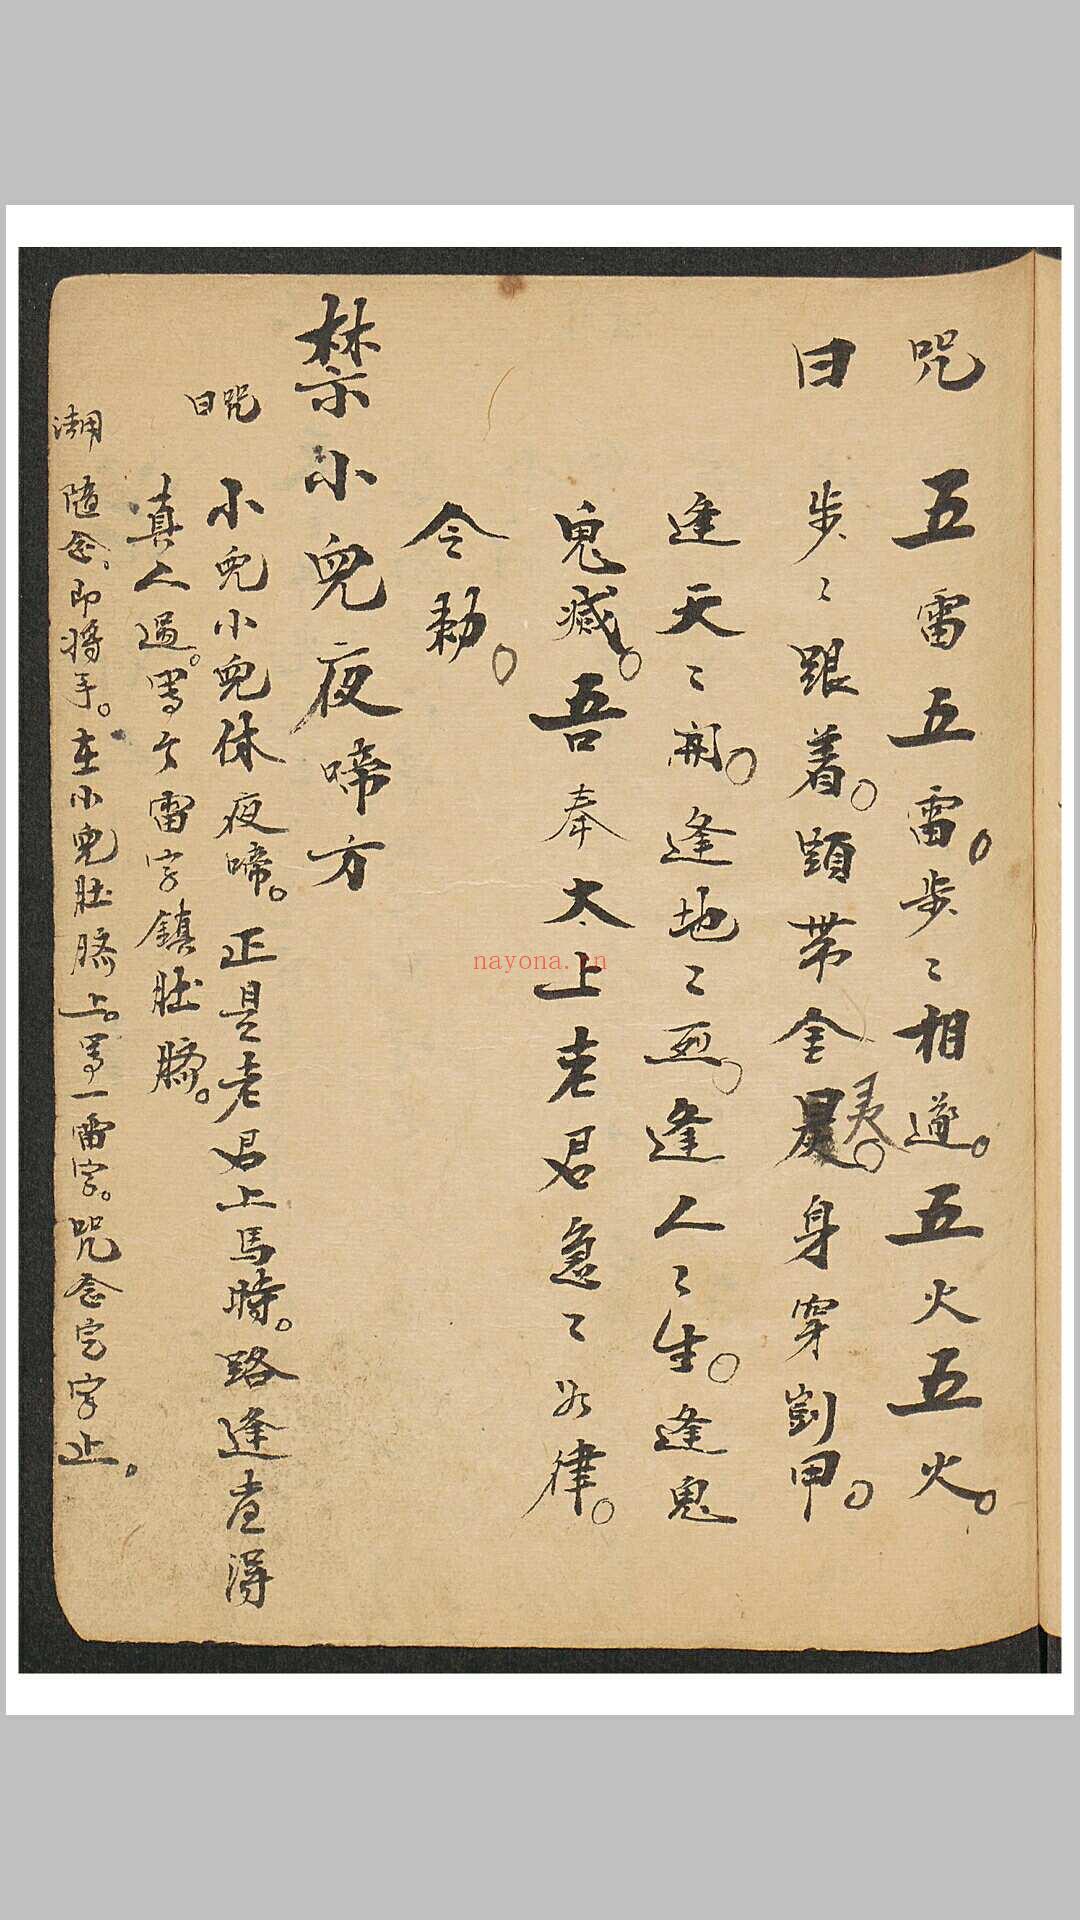 咒 五雷五雷。步〻相逰。五火五火。
曰 步〻跟着。頭带金 身穿 甲。
逢天〻開。逢地〻 。逢人〻生。逢鬼
鬼滅。吾奉太上老君急〻如律。
令勅。
禁小兒夜啼方
咒曰 小兒小兒休夜啼。正是老君上馬時。路逢 得
真人過。寫 雷字鎮肚臍。
湖用 隨念。即将手。在小兒肚臍上。寫一雷字。咒念完字止。
nayona.cn